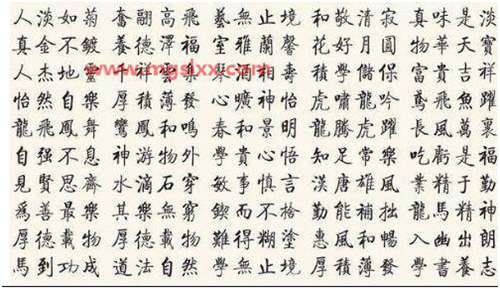 人淡如菊 奮翮高飛 藝無止境 和敬清寂 真味是淡
真金不鍍 養德澤福 室雅蘭馨 花好月圓 物華天寶
人杰地靈 千祥雲集 酒相壽 學儲保 富貴吉祥
www.mgslxx.com
怡然自樂 厚積薄發 心曠神怡 虎嘯龍吟 鳶飛魚躍
龍飛鳳舞 鸞鳳和鳴 春和景明 龍騰虎躍 長風萬裏
自强不息 神游物外 學貴心悟 知足常樂 吃虧是福
見賢思齊 水滴石穿 敏事慎言 漢唐雄風 業精于勤
爲善最樂 其樂無窮 鍥而不捨 勤能補拙 龍馬精神
厚德載物 厚德載物 難得糊塗 惠風和暢 入幽出朗
馬到功成 道法自然 學無止境 厚積薄發 學書養志